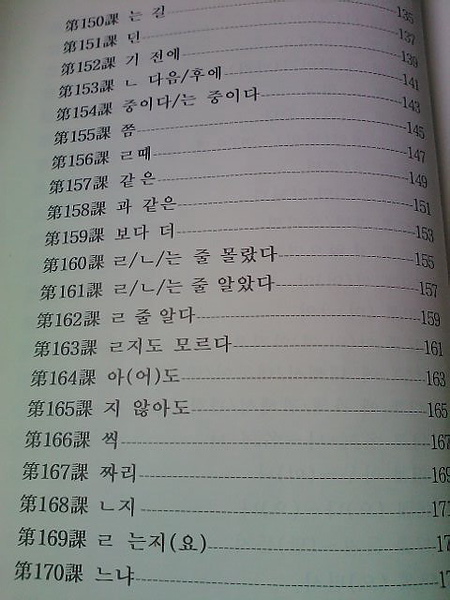 第150課 는 길 135
第151課 던 137
第152課 기 전에 139
第153課 ㄴ 다음/후에 141
第154課 중이다/는 중이다 143
第155課 쯤 145
第156課 ㄹ때 147
第157課 같은 149
第158課 과 같은 151
第159課 보다 더 153
第160課 ㄹ/ㄴ/는 줄 몰랐다 155
第161課 ㄹ/ㄴ/는 줄 알았다 157
第162課 ㄹ 줄 알다 159
第163課 ㄹ지도 모르다 161
第164課 아(어)도 163
第165課 지 않아도 165
第166課 씩 167
第167課 짜리 169
第168課 ㄴ지
第169課 ㄹ 는지(요)
第170課 느냐